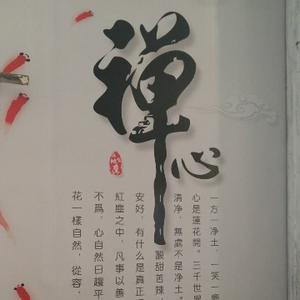 禪心
一方一净土，一笑一塵
心是蓮花開。三千世界
清净，無處不是净土
酸甜苦辣
安好，有什么是真正
紅塵之中，凡事以善
不爲，心自然日趨平
花一樣自然，從容，